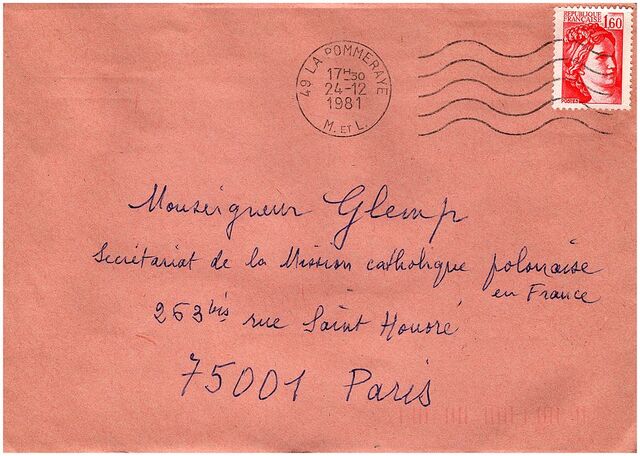 RÉPUBLIQUE
FRANÇAISE
1,60
POSTES
49 LA POMMERAYE
17H30
24-12
1981
M. ET L.
Monseigneur Glemp
Secrétariat de la Mission catholique polonaise
en France
263 bis rue Saint Honoré
75001 Paris